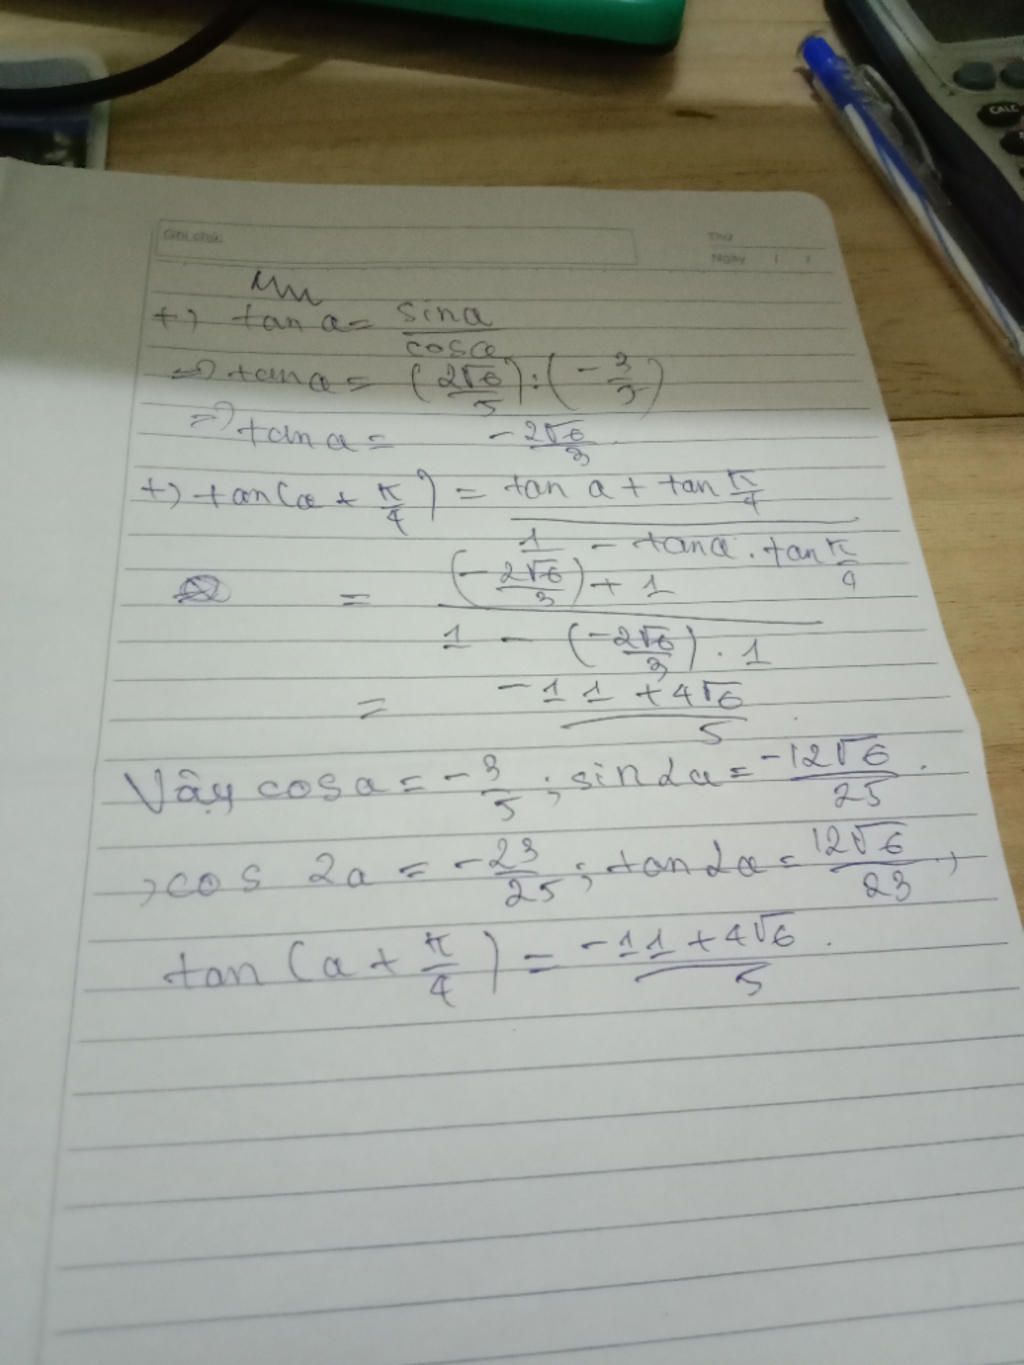 Ghi chú:
Thứ
Ngày / /
CALC
+) tan a = sin a / cos a
=> tan a = (2√6/5) : (-3/5)
=> tan a = -2√6/3.
+) tan(a + π/4) = (tan a + tan π/4) / (1 - tan a . tan π/4)
= ((-2√6/3) + 1) / (1 - (-2√6/3) . 1)
= (-11 + 4√6)/5
Vậy cos a = -3/5 ; sin 2a = -12√6/25 .
, cos 2a = -23/25 ; tan 2a = 12√6/23 ,
tan (a + π/4) = (-11 + 4√6)/5 .